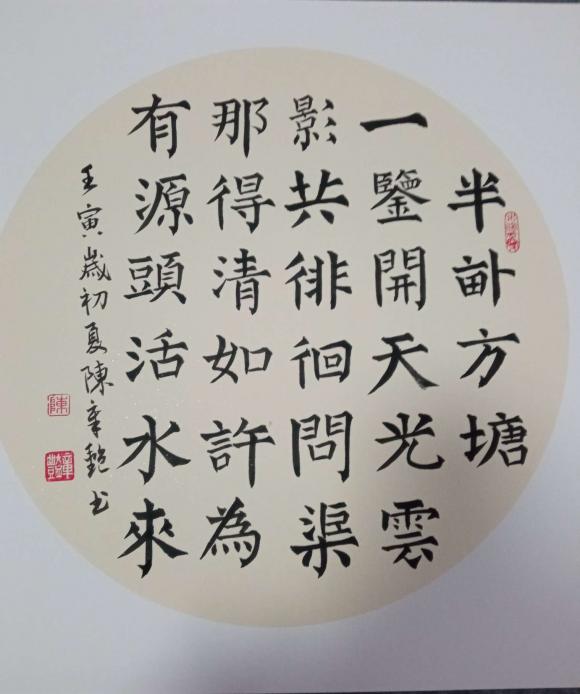 半畝方塘
一鑒開天光雲
影共徘徊問渠
那得清如許為
有源頭活水來
壬寅歲初夏陳章書
陳